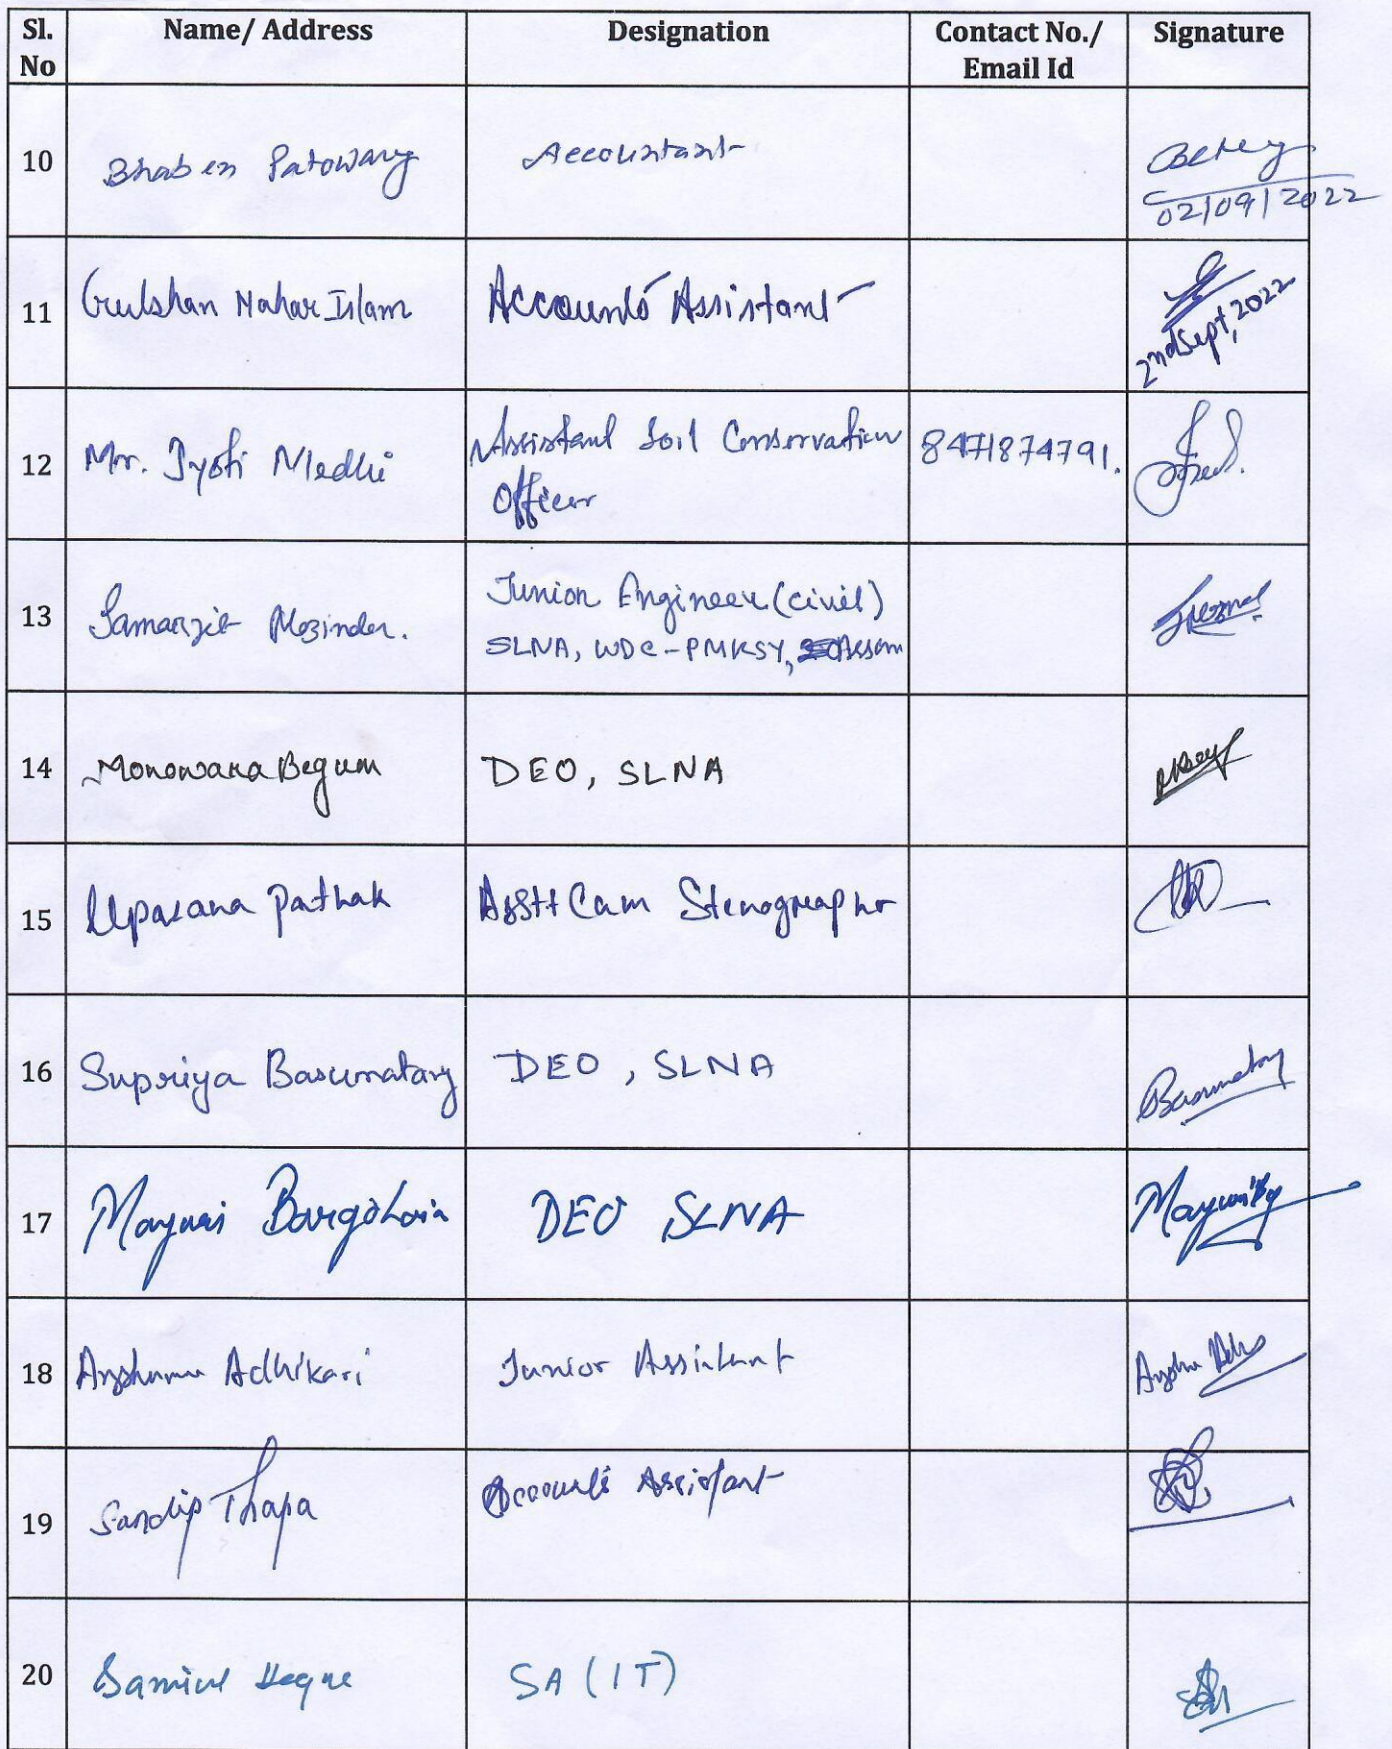 Sl. No Name/ Address Designation Contact No./ Email Id Signature
10 Bhaben Patowary Accountant
02/09/2022
11 Gulshan Mahar Islam Accounts Assistant
2nd Sept, 2022
12 Mr. Jyoti Medhi Assistant Soil Conservation Officer 8471874791.
13 Samarjit Mozinder. Junior Engineer (civil)
SLNA, WDC-PMKSY, Assam
14 Monowara Begum DEO, SLNA
15 Upasana Pathak Asstt Cum Stenographr
16 Supriya Basumatary DEO, SLNA Basumatry
17 Mayuri Borgohain DEO SLNA
18 Adhikari Junior Assistant
19 Sandip Thapa Accounts Assistant
20 Samiul Hoque SA (IT)